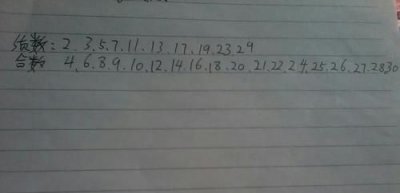 质数:2.3.5.7.11.13.17.19.23.29
合数 4.6.8.9.10.12.14.16.18.20.21.22.24.25.26.27.28.30